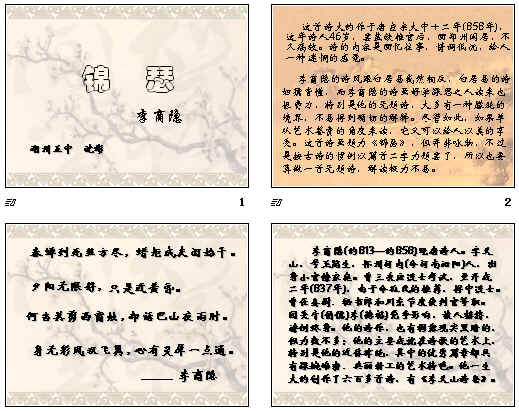 锦 瑟
李商隐
1
这首诗大约作于唐宣宗大中十二年(858年),
这年诗人46岁,罢盐铁推官后,回郑州闲居,不
久病故。诗的内容是回忆往事,情调低沉,给人
一种迷惘的感觉。
李商隐的诗风跟白居易截然相反,白居易的诗
如偶育懂,而李商隐的诗虽好学深思之人读来也
很费力,特别是他的无题诗,大多有一种朦胧的
境界,不易得到确切的解释。尽管如此,如果单
从艺术鉴赏的角度来读,它又可以给人以美的享
受。这首诗虽题为《锦瑟》,但并非咏物,不过
是按古诗的惯例以篇首二字为题罢了,所以也要
算做一首无题诗,解读极为不易。
2
春蚕到死丝方尽,蜡炬成灰泪始干。
夕阳无限好,只是近黄昏。
何当共剪西窗烛,却话巴山夜雨时。
身无彩凤双飞翼,心有灵犀一点通。
—— 李商隐
3
李商隐(约813—约858)晚唐诗人。字义
山,号玉谿生,怀州河内(今河南沁阳)人,出
身小官僚家庭。曾三次应进士考试,至开成
二年(837年),由于令狐綯的推荐,得中进士。
曾任县尉、秘书郎和川东节度使判官等职。
因受牛(僧儒)李(德裕)党争影响,被人排挤,
潦倒终身。他的诗作,也有
但为数不多;他的主要成就在诗歌的艺术上,
特别是他的近体律绝,其中的优秀篇章都具
有深婉
大约创作了六百多首诗,有《李义山诗集》。
4